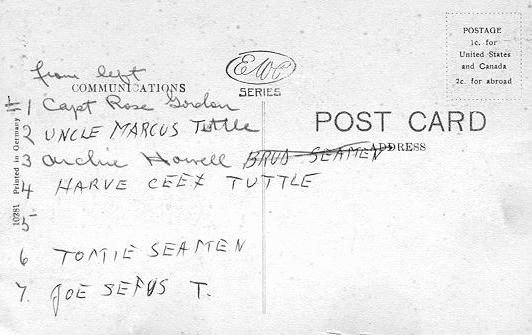 from left
COMMUNICATIONS
#1 Capt Rose Gordon
2 UNCLE MARCUS TUTTLE
3 Archie Howell BRUD SEAMEN
4 HARVE CEEZ TUTTLE
5
6 TOMIE SEAMEN
7. JOE SEFUS T.
10281 Printed in Germany
EWC
SERIES
POST CARD
ADDRESS
POSTAGE
1c. for
United States
and Canada
2c. for abroad